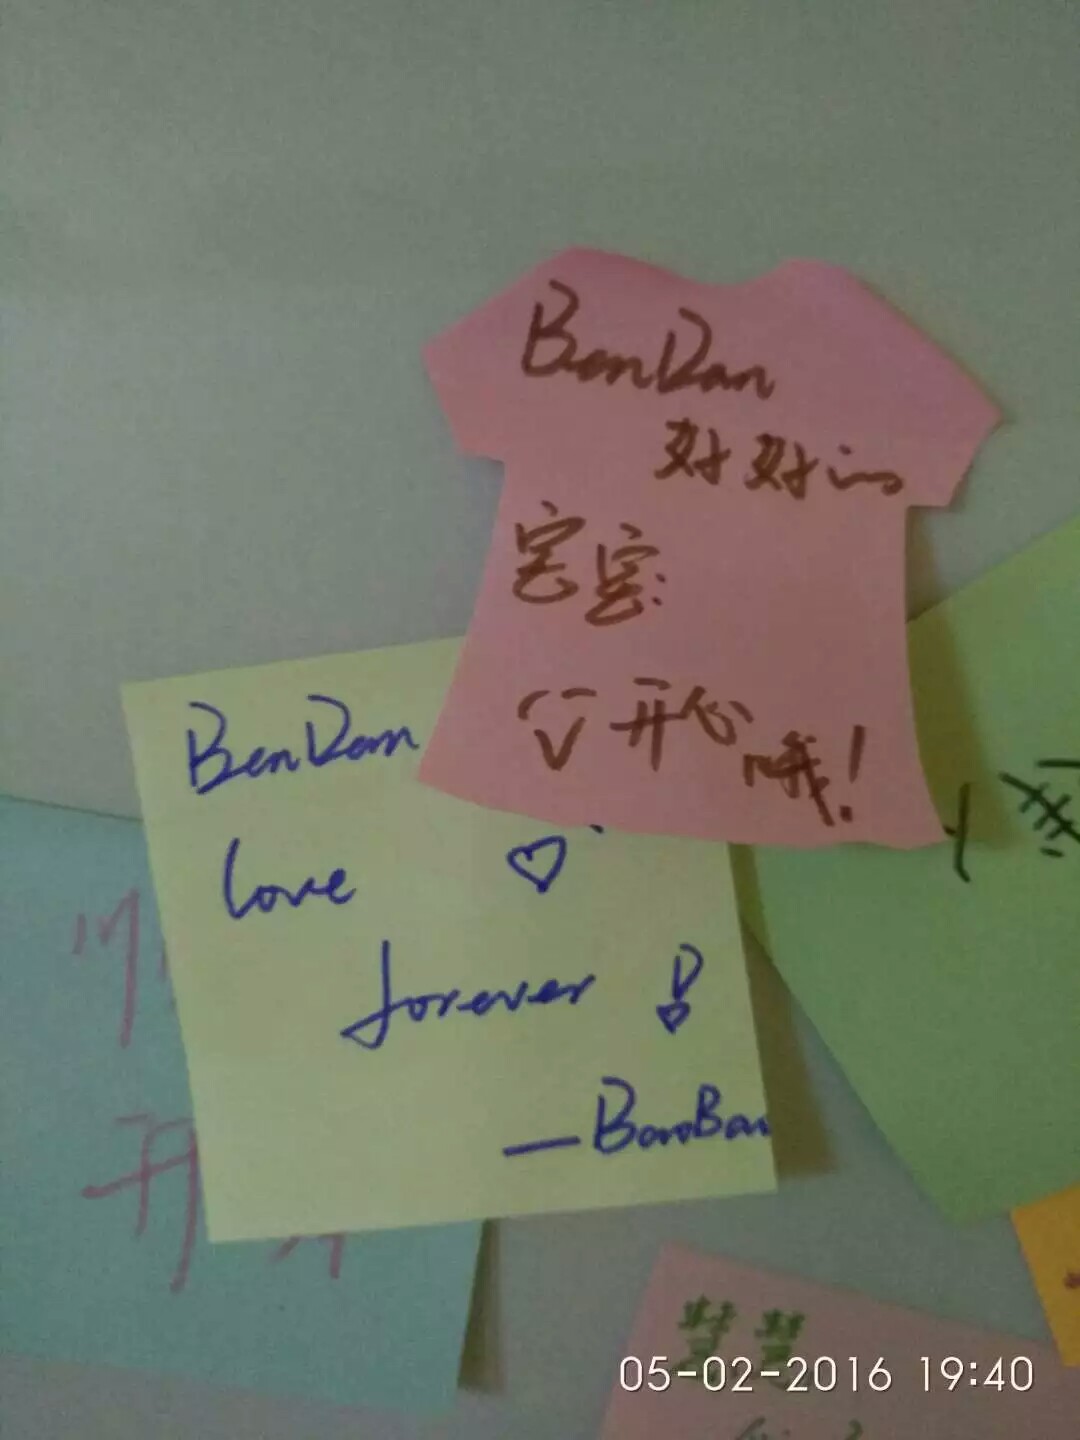 BenDan
好好的
宝宝:
要开心哦!
BenDan
love ♡
forever
—BaoBao
开
慧慧
05-02-2016 19:40